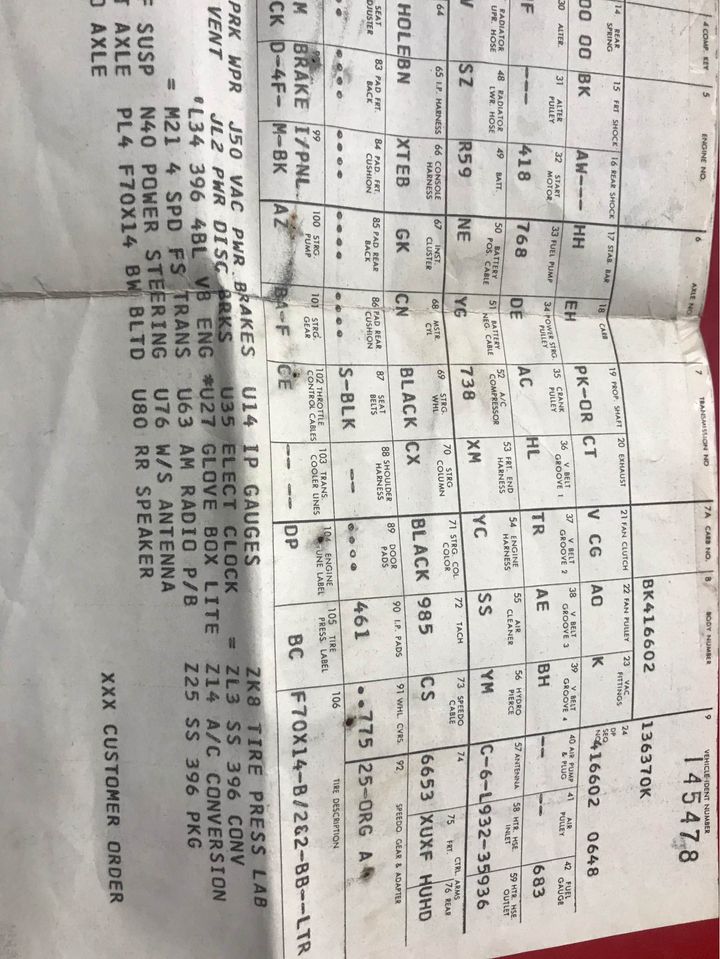 4 COMP. KEY 5 ENGINE NO. 6 AXLE NO. 7 TRANSMISSION NO 7A CARB NO. 8 BODY NUMBER 9 VEHICLE IDENT NUMBER
145478
BK416602 136370K
14 REAR SPRING 15 FRT SHOCK 16 REAR SHOCK 17 STAB. BAR 18 CARB 19 PROP. SHAFT 20 EXHAUST 21 FAN CLUTCH 22 FAN PULLEY 23 VAC. FITTINGS 24 DP SEQ NO
OO OO BK AW--- HH EH PK-OR CT V CG AO K 416602 0648
30 ALTER. 31 ALTER PULLEY 32 START MOTOR 33 FUEL PUMP 34 POWER STRG. PULLEY 35 CRANK PULLEY 36 V BELT GROOVE 1 37 V BELT GROOVE 2 38 V BELT GROOVE 3 39 V BELT GROOVE 4 40 AIR PUMP & PLUG 41 AIR PULLEY 42 FUEL GAUGE
--- 418 768 DE AC HL TR AE BH -- -- 683
RADIATOR UPR. HOSE 48 RADIATOR LWR. HOSE 49 BATT. 50 BATTERY POS. CABLE 51 BATTERY NEG. CABLE 52 A/C COMPRESSOR 53 FRT. END HARNESS 54 ENGINE HARNESS 55 AIR CLEANER 56 HYDRO PIERCE 57 ANTENNA 58 HTR. HSE. INLET 59 HTR. HSE. OUTLET
SZ R59 NE YG 738 XM YC SS YM C-6-L932-35936
64 65 I.P. HARNESS 66 CONSOLE HARNESS 67 INST. CLUSTER 68 MSTR. CYL 69 STRG. WHL 70 STRG COLUMN 71 STRG. COL. COLOR 72 TACH 73 SPEEDO CABLE 74 75 FRT. CTRL. ARMS 76 REAR
HOLEBN XTEB GK CN BLACK CX BLACK 985 CS 6653 XUXF HUHD
SEAT ADJUSTER 83 PAD FRT. BACK 84 PAD. FRT. CUSHION 85 PAD REAR BACK 86 PAD REAR CUSHION 87 SEAT BELTS 88 SHOULDER HARNESS 89 DOOR PADS 90 I.P. PADS 91 WHL CVRS. 92 SPEEDO. GEAR & ADAPTER
•••• •••• •••• •••• •••• S-BLK -- •••• 461 ••775 25-ORG A
99 100 STRG. PUMP 101 STRG. GEAR 102 THROTTLE CONTROL CABLES 103 TRANS. COOLER LINES 104 ENGINE TUNE LABEL 105 TIRE PRESS. LABEL 106 TIRE DESCRIPTION
M BRAKE I/PNL
CK D-4F- M-BK AZ BA-F CE -- -- DP BC F70X14-B/2&2-BB--LTR
PRK WPR J50 VAC PWR BRAKES U14 IP GAUGES ZK8 TIRE PRESS LAB
VENT JL2 PWR DISC BRKS U35 ELECT CLOCK = ZL3 SS 396 CONV
*L34 396 4BL V8 ENG *U27 GLOVE BOX LITE Z14 A/C CONVERSION
= M21 4 SPD FS TRANS U63 AM RADIO P/B Z25 SS 396 PKG
F SUSP N40 POWER STEERING U76 W/S ANTENNA
T AXLE PL4 F70X14 BW BLTD U80 RR SPEAKER
D AXLE
XXX CUSTOMER ORDER